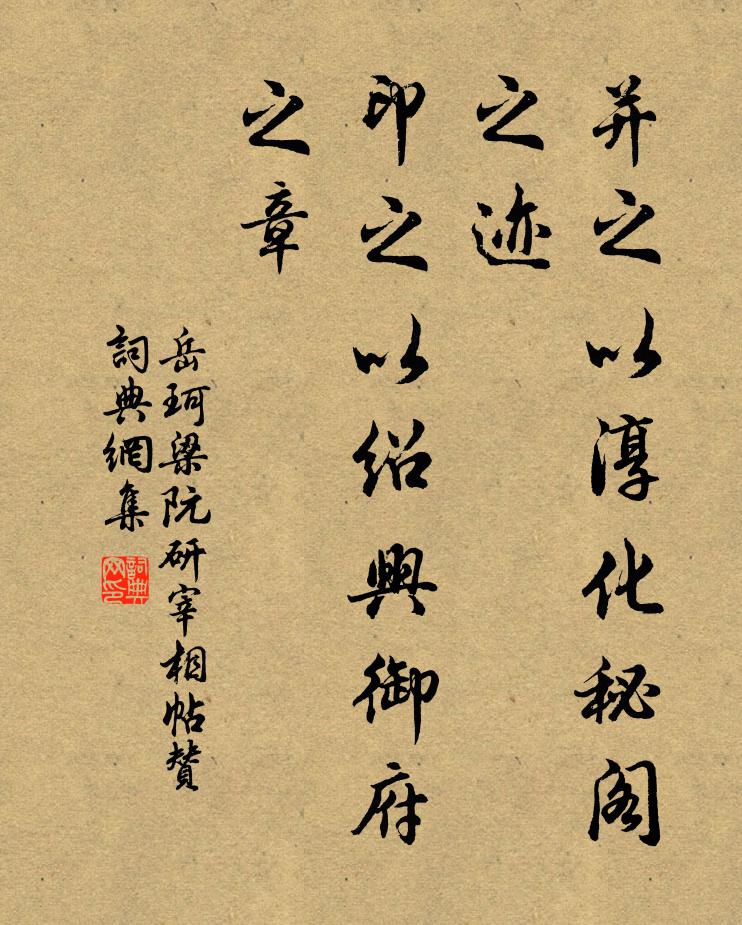 并之以淳化秘阁
之迹
印之以绍興御府
之章
岳珂梁阮研宰相帖賛
詞典網集
詞典网印